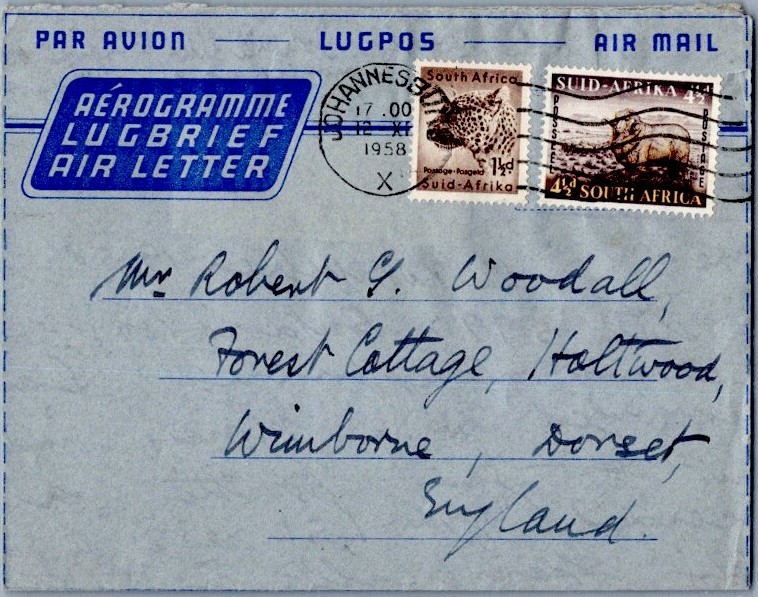 PAR AVION LUGPOS AIR MAIL
AÉROGRAMME
LUGBRIEF
AIR LETTER
JOHANNESBURG
17 .00
12 XI
1958
X
South Africa
Postage-Posgeld 1½d.
Suid-Afrika
SUID-AFRIKA 4½
POSTAGE
4½d SOUTH AFRICA
Mr Robert G. Woodall,
Forest Cottage, Holtwood,
Wimborne, Dorset,
England.